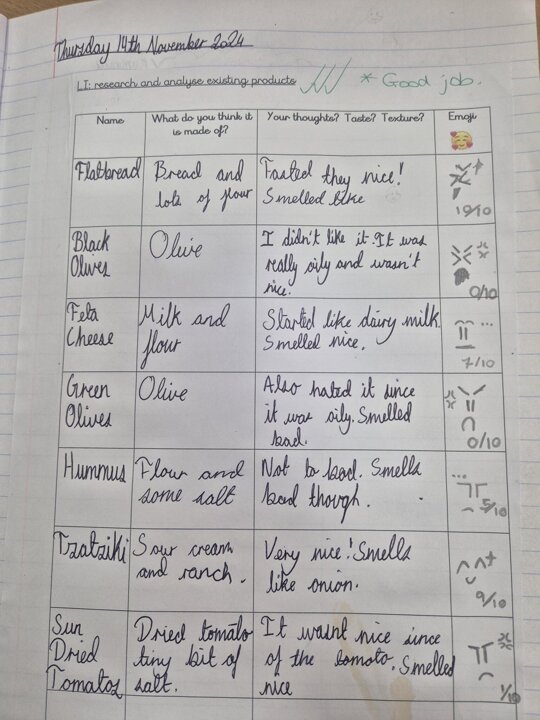 Thursday 14th November 2024
LI: research and analyse existing products
* Good job.
Name
What do you think it
is made of?
Your thoughts? Taste? Texture?
Emoji
Flatbread
Bread and
lots of flour
Tasted they nice!
Smelled like
10/10
Black
Olives
Olive
I didn't like it. It was
really oily and wasn't
nice.
0/10
Feta
Cheese
Milk and
flour
Started like dairy milk
Smelled nice.
7/10
Green
Olives
Olive
Also hated it since
it was oily. Smelled
bad.
0/10
Hummus
Flour and
some salt
Not to bad. Smells
bad though.
5/10
Tzatziki
Sour cream
and ranch.
Very nice! Smells
like onion.
9/10
Sun
Dried
Tomatos
Dried tomato
tiny bit of
salt.
It wasnt nice since
of the tomato. Smelled
nice
1/10